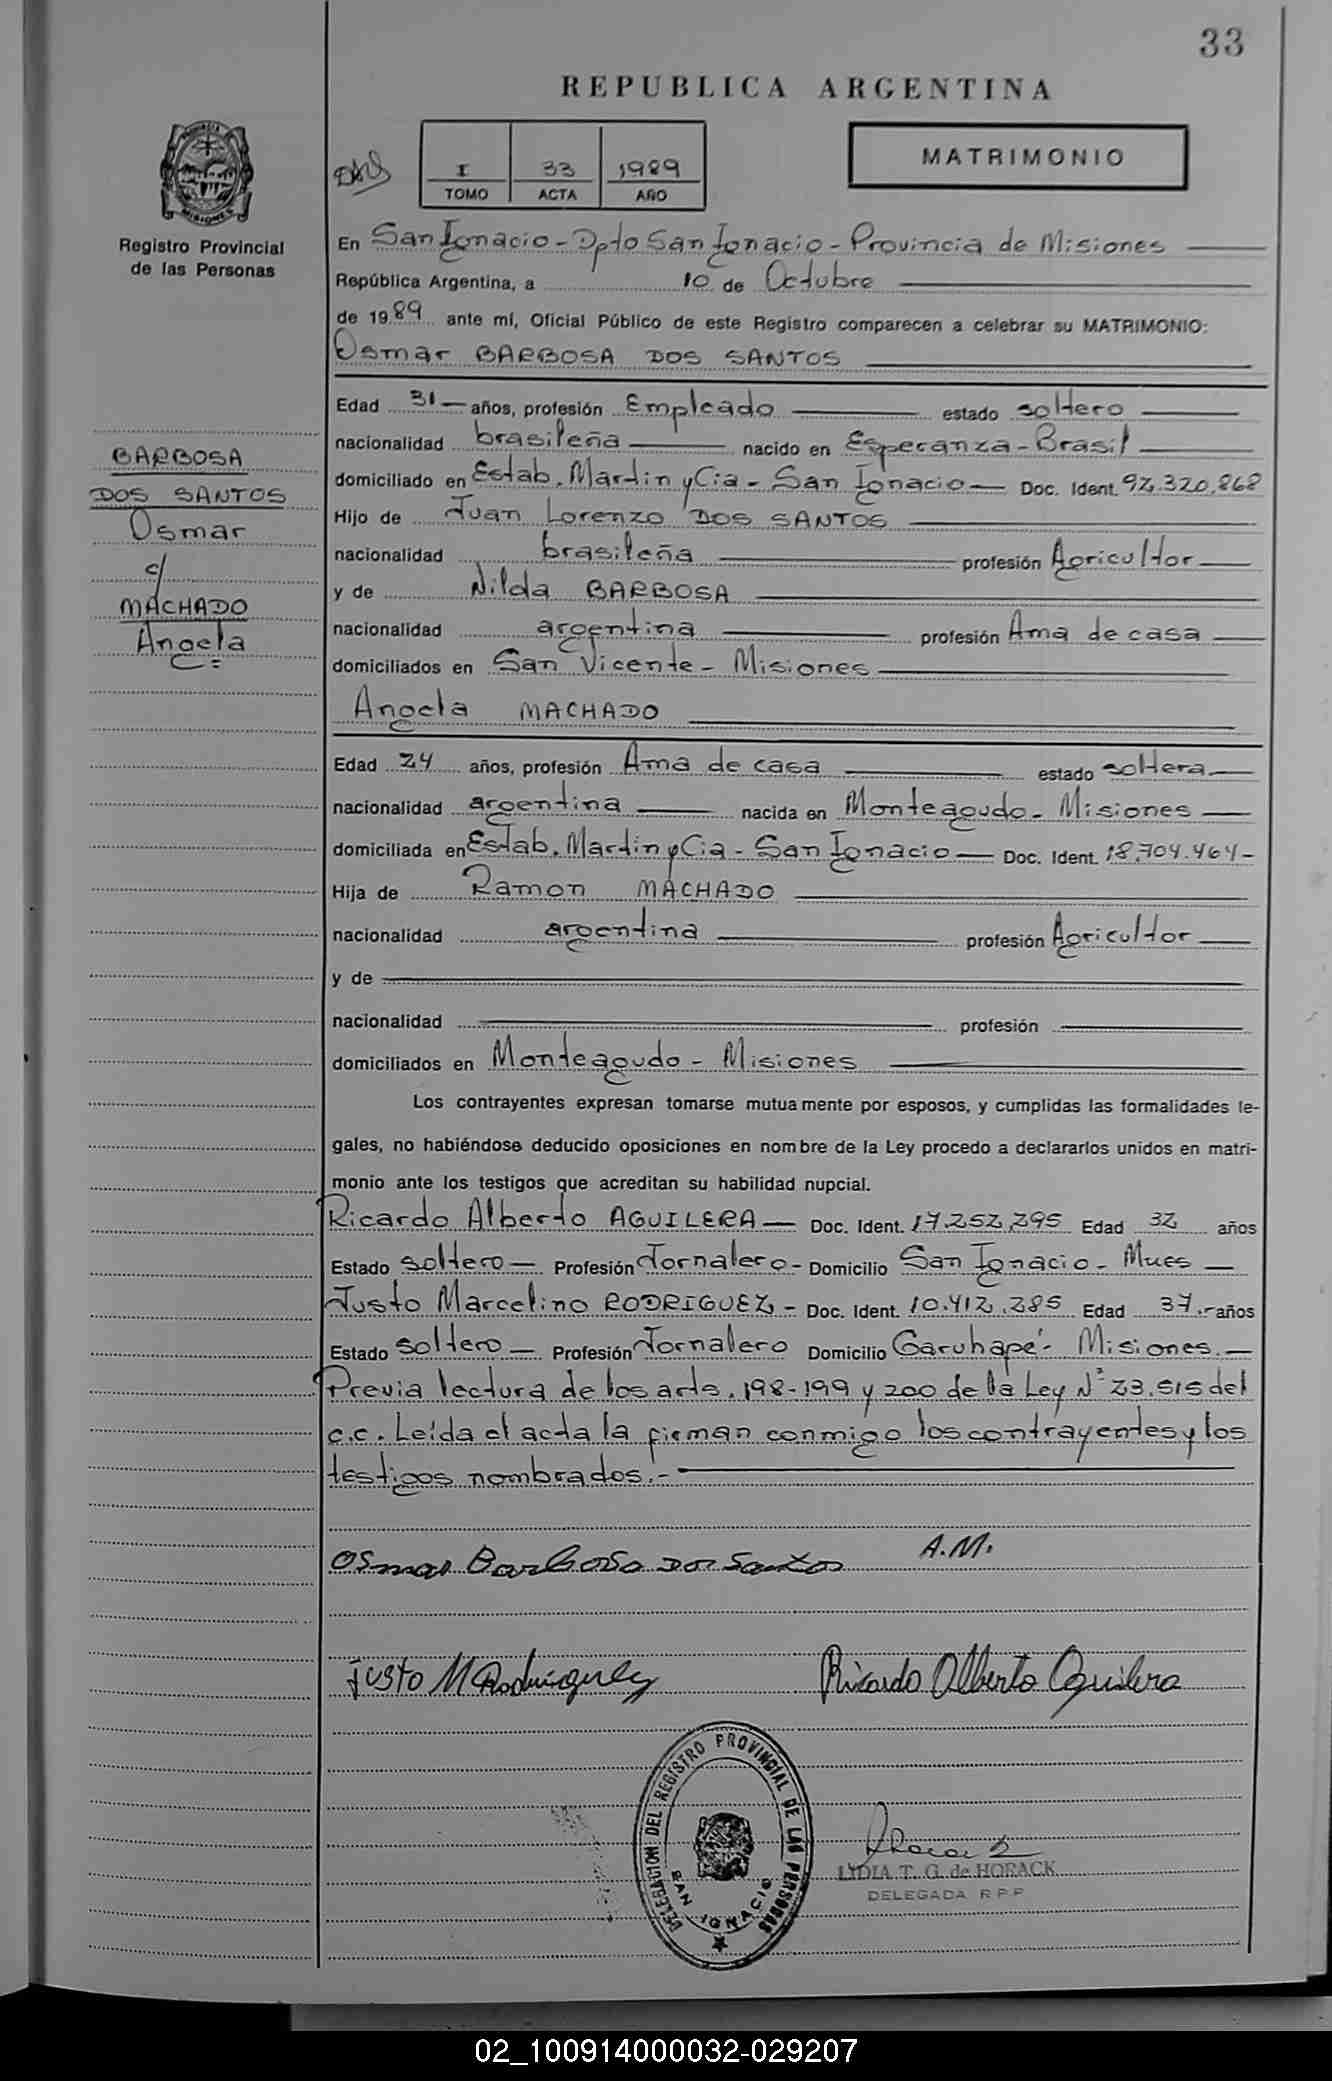 33
REPUBLICA ARGENTINA
MATRIMONIO
I 33 1989
TOMO ACTA AÑO
PROVINCIA DE MISIONES
Registro Provincial
de las Personas
En San Ignacio - Dpto San Ignacio - Provincia de Misiones
República Argentina, a 10 de Octubre
de 1989 ante mí, Oficial Público de este Registro comparecen a celebrar su MATRIMONIO:
Osmar BARBOSA DOS SANTOS
Edad 31 años, profesión Empleado estado soltero
nacionalidad brasileña nacido en Esperanza - Brasil
domiciliado en Estab. Martin y Cia - San Ignacio Doc. Ident. 92.320.868
Hijo de Juan Lorenzo DOS SANTOS
nacionalidad brasileña profesión Agricultor
y de Nilda BARBOSA
nacionalidad argentina profesión Ama de casa
domiciliados en San Vicente - Misiones
BARBOSA
DOS SANTOS
Osmar
c/
MACHADO
Angela
Angela MACHADO
Edad 24 años, profesión Ama de casa estado soltera
nacionalidad argentina nacida en Monteagudo - Misiones
domiciliada en Estab. Martin y Cia - San Ignacio Doc. Ident. 18.704.464-
Hija de Ramon MACHADO
nacionalidad argentina profesión Agricultor
y de
nacionalidad profesión
domiciliados en Monteagudo - Misiones
Los contrayentes expresan tomarse mutuamente por esposos, y cumplidas las formalidades le-
gales, no habiéndose deducido oposiciones en nombre de la Ley procedo a declararlos unidos en matri-
monio ante los testigos que acreditan su habilidad nupcial.
Ricardo Alberto AGUILERA Doc. Ident. 17.252.295 Edad 32 años
Estado soltero Profesión Jornalero - Domicilio San Ignacio - Mnes
Justo Marcelino RODRIGUEZ - Doc. Ident. 10.412.285 Edad 37.- años
Estado soltero Profesión Jornalero Domicilio Garuhapé - Misiones.
Previa lectura de los arts. 198-199 y 200 de la Ley Nº 23.515 del
c.c. Leída el acta la firman conmigo los contrayentes y los
testigos nombrados.-
Osmar Barbosa Dos Santos A.M.
Justo M Rodriguez Ricardo Alberto Aguilera
DELEGACION DEL REGISTRO PROVINCIAL DE LAS PERSONAS
SAN IGNACIO
LYDIA T. G. de HORACK
DELEGADA R P P
02_100914000032-029207